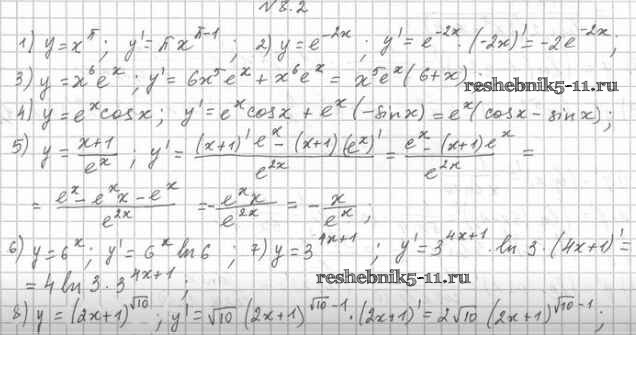 №8.2
1) y=x^π; y'=πx^(π-1); 2) y=e^(-2x); y'=e^(-2x)·(-2x)'=-2e^(-2x);
reshebnik5-11.ru
3) y=x⁶e^x; y'=6x⁵e^x+x⁶e^x=x⁵e^x(6+x);
4) y=e^x cosx; y'=e^x cosx+e^x(-sinx)=e^x(cosx-sinx);
5) y=(x+1)/e^x; y'=((x+1)'e^x-(x+1)(e^x)')/e^(2x)=(e^x-(x+1)e^x)/e^(2x)=
=(e^x-e^x x-e^x)/e^(2x)=-(e^x x)/e^(2x)=-x/e^x;
6) y=6^x; y'=6^x ln6; 7) y=3^(4x+1); y'=3^(4x+1)·ln3·(4x+1)'=
=4ln3·3^(4x+1);
reshebnik5-11.ru
8) y=(2x+1)^√10; y'=√10(2x+1)^(√10-1)·(2x+1)'=2√10(2x+1)^(√10-1);